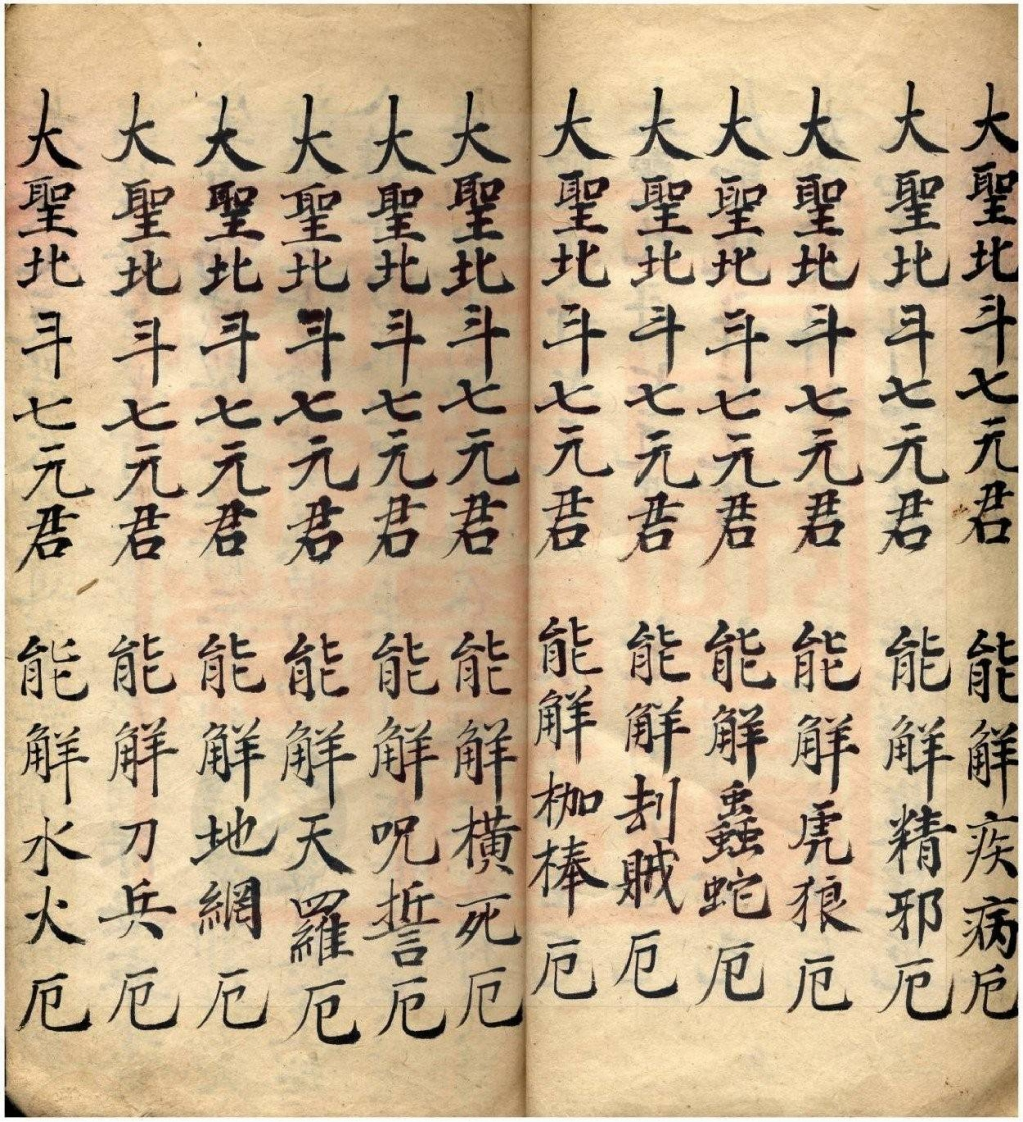 大聖北斗七元君 能解疾病厄
大聖北斗七元君 能解精邪厄
大聖北斗七元君 能解虎狼厄
大聖北斗七元君 能解蟲蛇厄
大聖北斗七元君 能解刦賊厄
大聖北斗七元君 能解枷棒厄
大聖北斗七元君 能解橫死厄
大聖北斗七元君 能解呪誓厄
大聖北斗七元君 能解天羅厄
大聖北斗七元君 能解地網厄
大聖北斗七元君 能解刀兵厄
大聖北斗七元君 能解水火厄